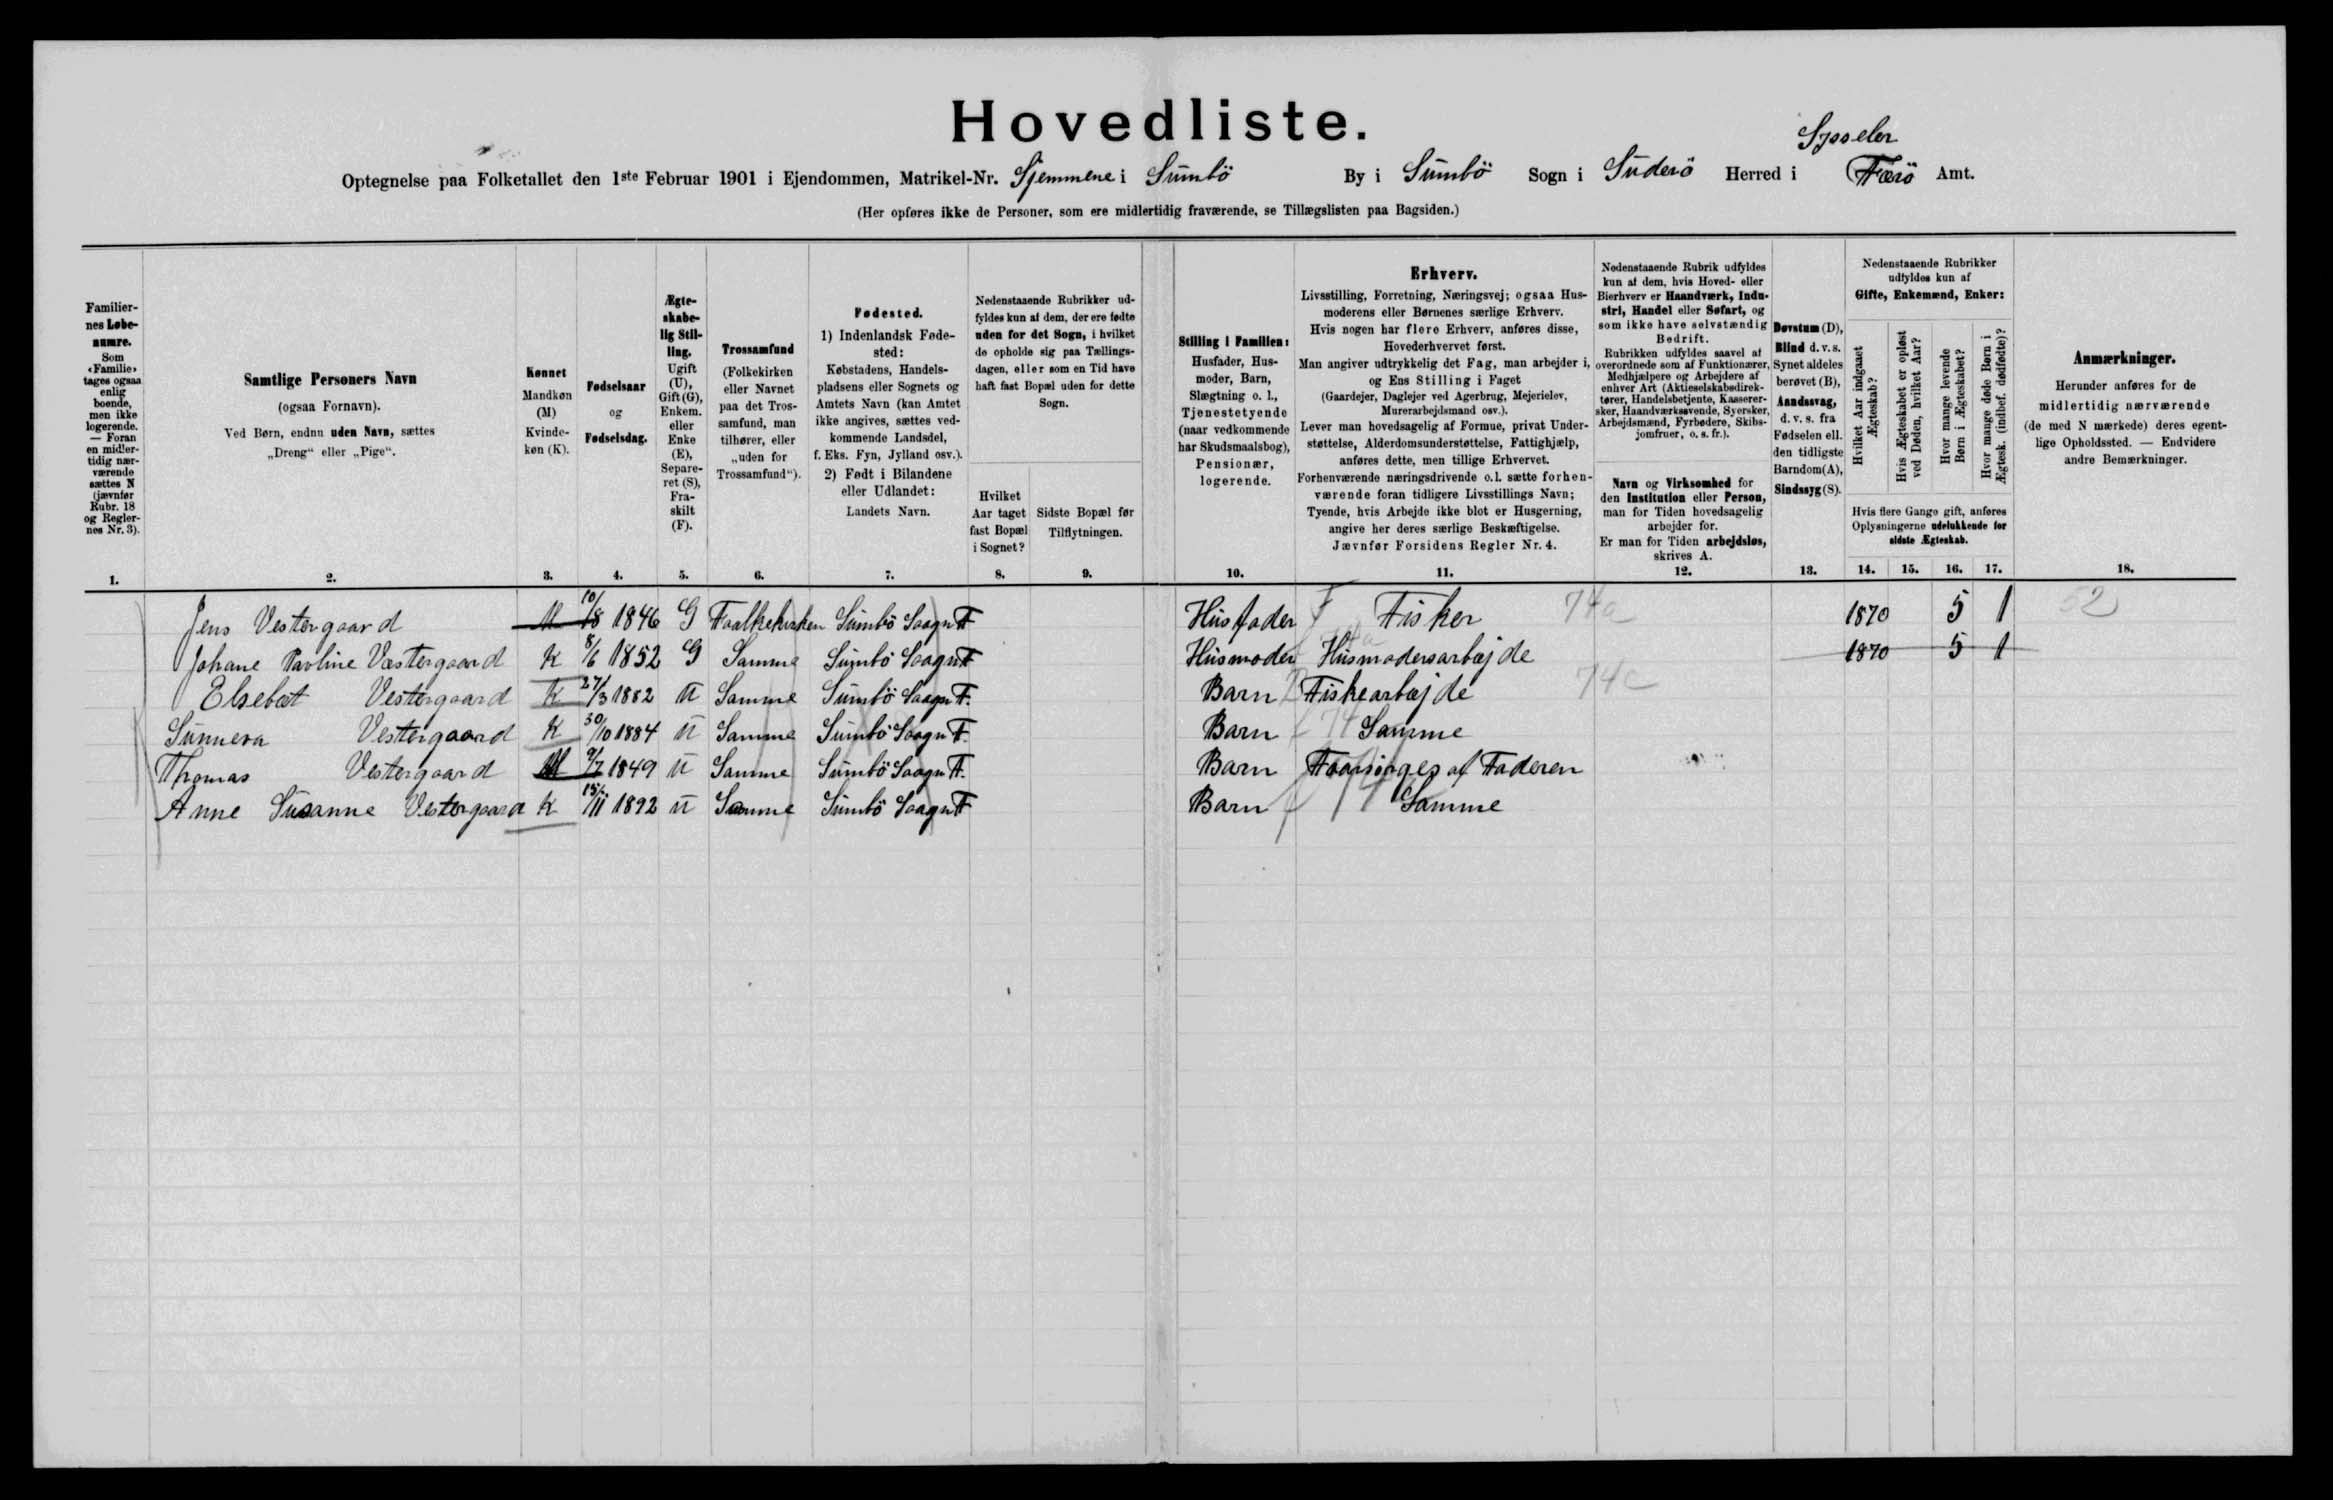 Hovedliste.
Sysseler
Optegnelse paa Folketallet den 1ste Februar 1901 i Ejendommen, Matrikel-Nr. Sjemmene i Sumbö By i Sumbö Sogn i Suderö Herred i Færö Amt.
(Her opføres ikke de Personer, som ere midlertidig fraværende, se Tillægslisten paa Bagsiden.)
Familier-
nes Løbe-
numre.
Som
«Familie»
tages ogsaa
enlig
boende,
men ikke
logerende.
— Foran
en midler-
tidig nær-
værende
sættes N
(jævnfør
Rubr. 18
og Regler-
nes Nr. 3).
1.
Samtlige Personers Navn
(ogsaa Fornavn).
Ved Børn, endnu uden Navn, sættes
„Dreng“ eller „Pige“.
2.
Kønnet
Mandkøn
(M)
Kvinde-
køn (K).
3.
Fødselsaar
og
Fødselsdag.
4.
Ægte-
skabe-
lig Stil-
ling.
Ugift
(U),
Gift (G),
Enkem.
eller
Enke
(E),
Separe-
ret (S),
Fra-
skilt
(F).
5.
Trossamfund
(Folkekirken
eller Navnet
paa det Tros-
samfund, man
tilhører, eller
„uden for
Trossamfund“).
6.
Fødested.
1) Indenlandsk Føde-
sted:
Købstadens, Handels-
pladsens eller Sognets og
Amtets Navn (kan Amtet
ikke angives, sættes ved-
kommende Landsdel,
f. Eks. Fyn, Jylland osv.).
2) Født i Bilandene
eller Udlandet:
Landets Navn.
7.
Nedenstaaende Rubrikker ud-
fyldes kun af dem, der ere fødte
uden for det Sogn, i hvilket
de opholde sig paa Tællings-
dagen, eller som en Tid have
haft fast Bopæl uden for dette
Sogn.
Hvilket
Aar taget
fast Bopæl
i Sognet?
8.
Sidste Bopæl før
Tilflytningen.
9.
Stilling i Familien:
Husfader, Hus-
moder, Barn,
Slægtning o. l.,
Tjenestetyende
(naar vedkommende
har Skudsmaalsbog),
Pensionær,
logerende.
10.
Erhverv.
Livsstilling, Forretning, Næringsvej; ogsaa Hus-
moderens eller Børnenes særlige Erhverv.
Hvis nogen har flere Erhverv, anføres disse,
Hovederhvervet først.
Man angiver udtrykkelig det Fag, man arbejder i,
og Ens Stilling i Faget
(Gaardejer, Daglejer ved Agerbrug, Mejerielev,
Murerarbejdsmand osv.).
Lever man hovedsagelig af Formue, privat Under-
støttelse, Alderdomsunderstøttelse, Fattighjælp,
anføres dette, men tillige Erhvervet.
Forhenværende næringsdrivende o.l. sætte forhen-
værende foran tidligere Livsstillings Navn;
Tyende, hvis Arbejde ikke blot er Husgerning,
angive her deres særlige Beskæftigelse.
Jævnfør Forsidens Regler Nr. 4.
11.
Nedenstaaende Rubrik udfyldes
kun af dem, hvis Hoved- eller
Bierhverv er Haandværk, Indu-
stri, Handel eller Søfart, og
som ikke have selvstændig
Bedrift.
Rubrikken udfyldes saavel af
overordnede som af Funktionærer,
Medhjælpere og Arbejdere af
enhver Art (Aktieselskabsdirek-
tører, Handelsbetjente, Kasserer-
sker, Haandværkssvende, Syersker,
Arbejdsmænd, Fyrbødere, Skibs-
jomfruer, o. s. fr.).
Navn og Virksomhed for
den Institution eller Person,
man for Tiden hovedsagelig
arbejder for.
Er man for Tiden arbejdsløs,
skrives A.
12.
Døvstum (D),
Blind d. v. s.
Synet aldeles
berøvet (B),
Aandssvag,
d. v. s. fra
Fødselen ell.
den tidligste
Barndom(A),
Sindssyg (S).
13.
Nedenstaaende Rubrikker
udfyldes kun af
Gifte, Enkemænd, Enker:
Hvilket Aar indgaaet
Ægteskab?
Hvis Ægteskabet er opløst
ved Døden, hvilket Aar?
Hvor mange levende
Børn i Ægteskabet?
Hvor mange døde Børn i
Ægtesk. (indbef. dødfødte)?
Hvis flere Gange gift, anføres
Oplysningerne udelukkende for
sidste Ægteskab.
14. 15. 16. 17.
Anmærkninger.
Herunder anføres for de
midlertidig nærværende
(de med N mærkede) deres egent-
lige Opholdssted. — Endvidere
andre Bemærkninger.
18.
Jens Vestergaard M 10/8 1846 G Faalkekirken Sumbö Saagn F Husfader Fisker 74a 1870 5 1 52
Johane Pavline Vestergaard K 8/6 1852 G Samme Sumbö Saagn F Husmoder Husmodersarbejde 1870 5 1
Elsebæt Vestergaard K 27/3 1882 U Samme Sumbö Saagn F. Barn Fiskearbejde 74c
Sunneva Vestergaard K 30/10 1884 U Samme Sumbö Saagn F. Barn Samme
Thomas Vestergaard M 9/7 1849 U Samme Sumbö Saagn F. Barn Faarsörges af Faderen
Anne Susanne Vestergaard K 15/11 1892 U Samme Sumbö Saagn F Barn Samme